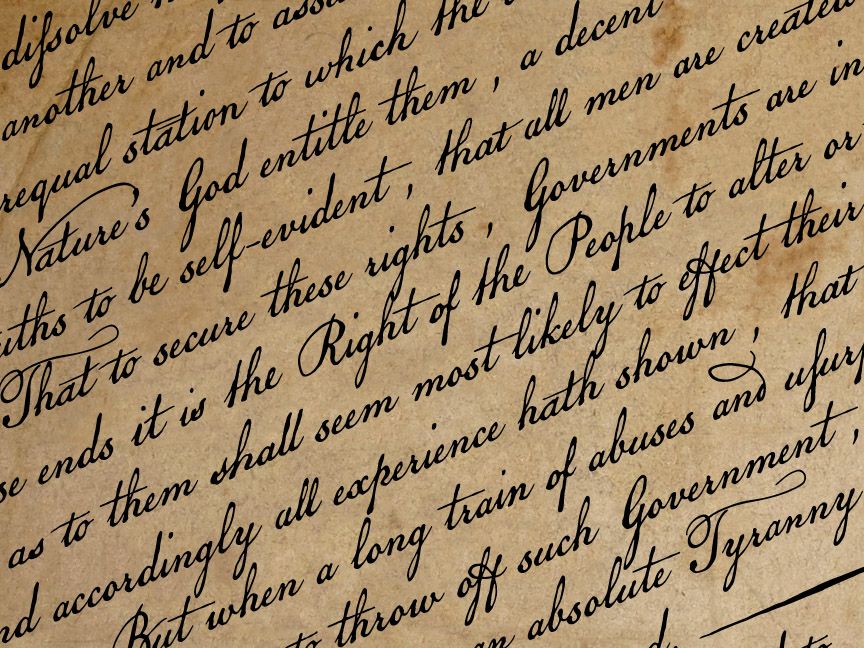 diſsolve
another and to
equal station to which the
Nature's God entitle them , a decent
uths to be self-evident , that all men are created
That to secure these rights , Governments are in
se ends it is the Right of the People to alter or
as to them shall seem most likely to effect their
nd accordingly all experience hath shown , that
But when a long train of abuses and uſurp
to throw off such Government ,
an absolute Tyranny
to